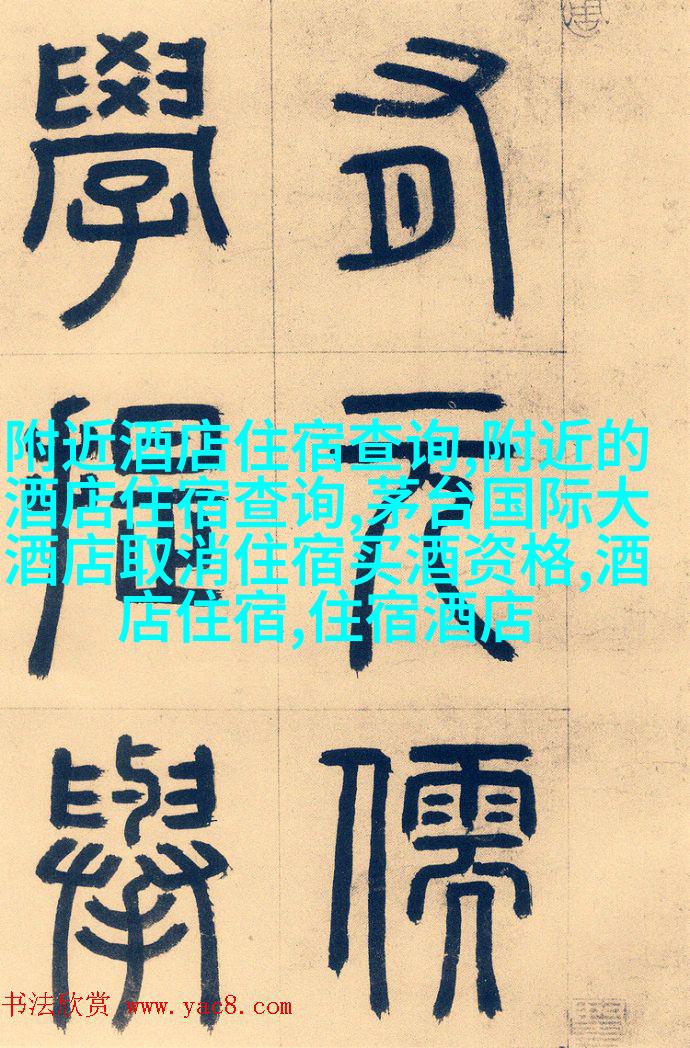 有元儒
學提舉
附近酒店住宿查询,附近的
酒店住宿查询,茅台国际大
酒店取消住宿买酒资格,酒
店住宿,住宿酒店
书法欣赏 www.yac8.com